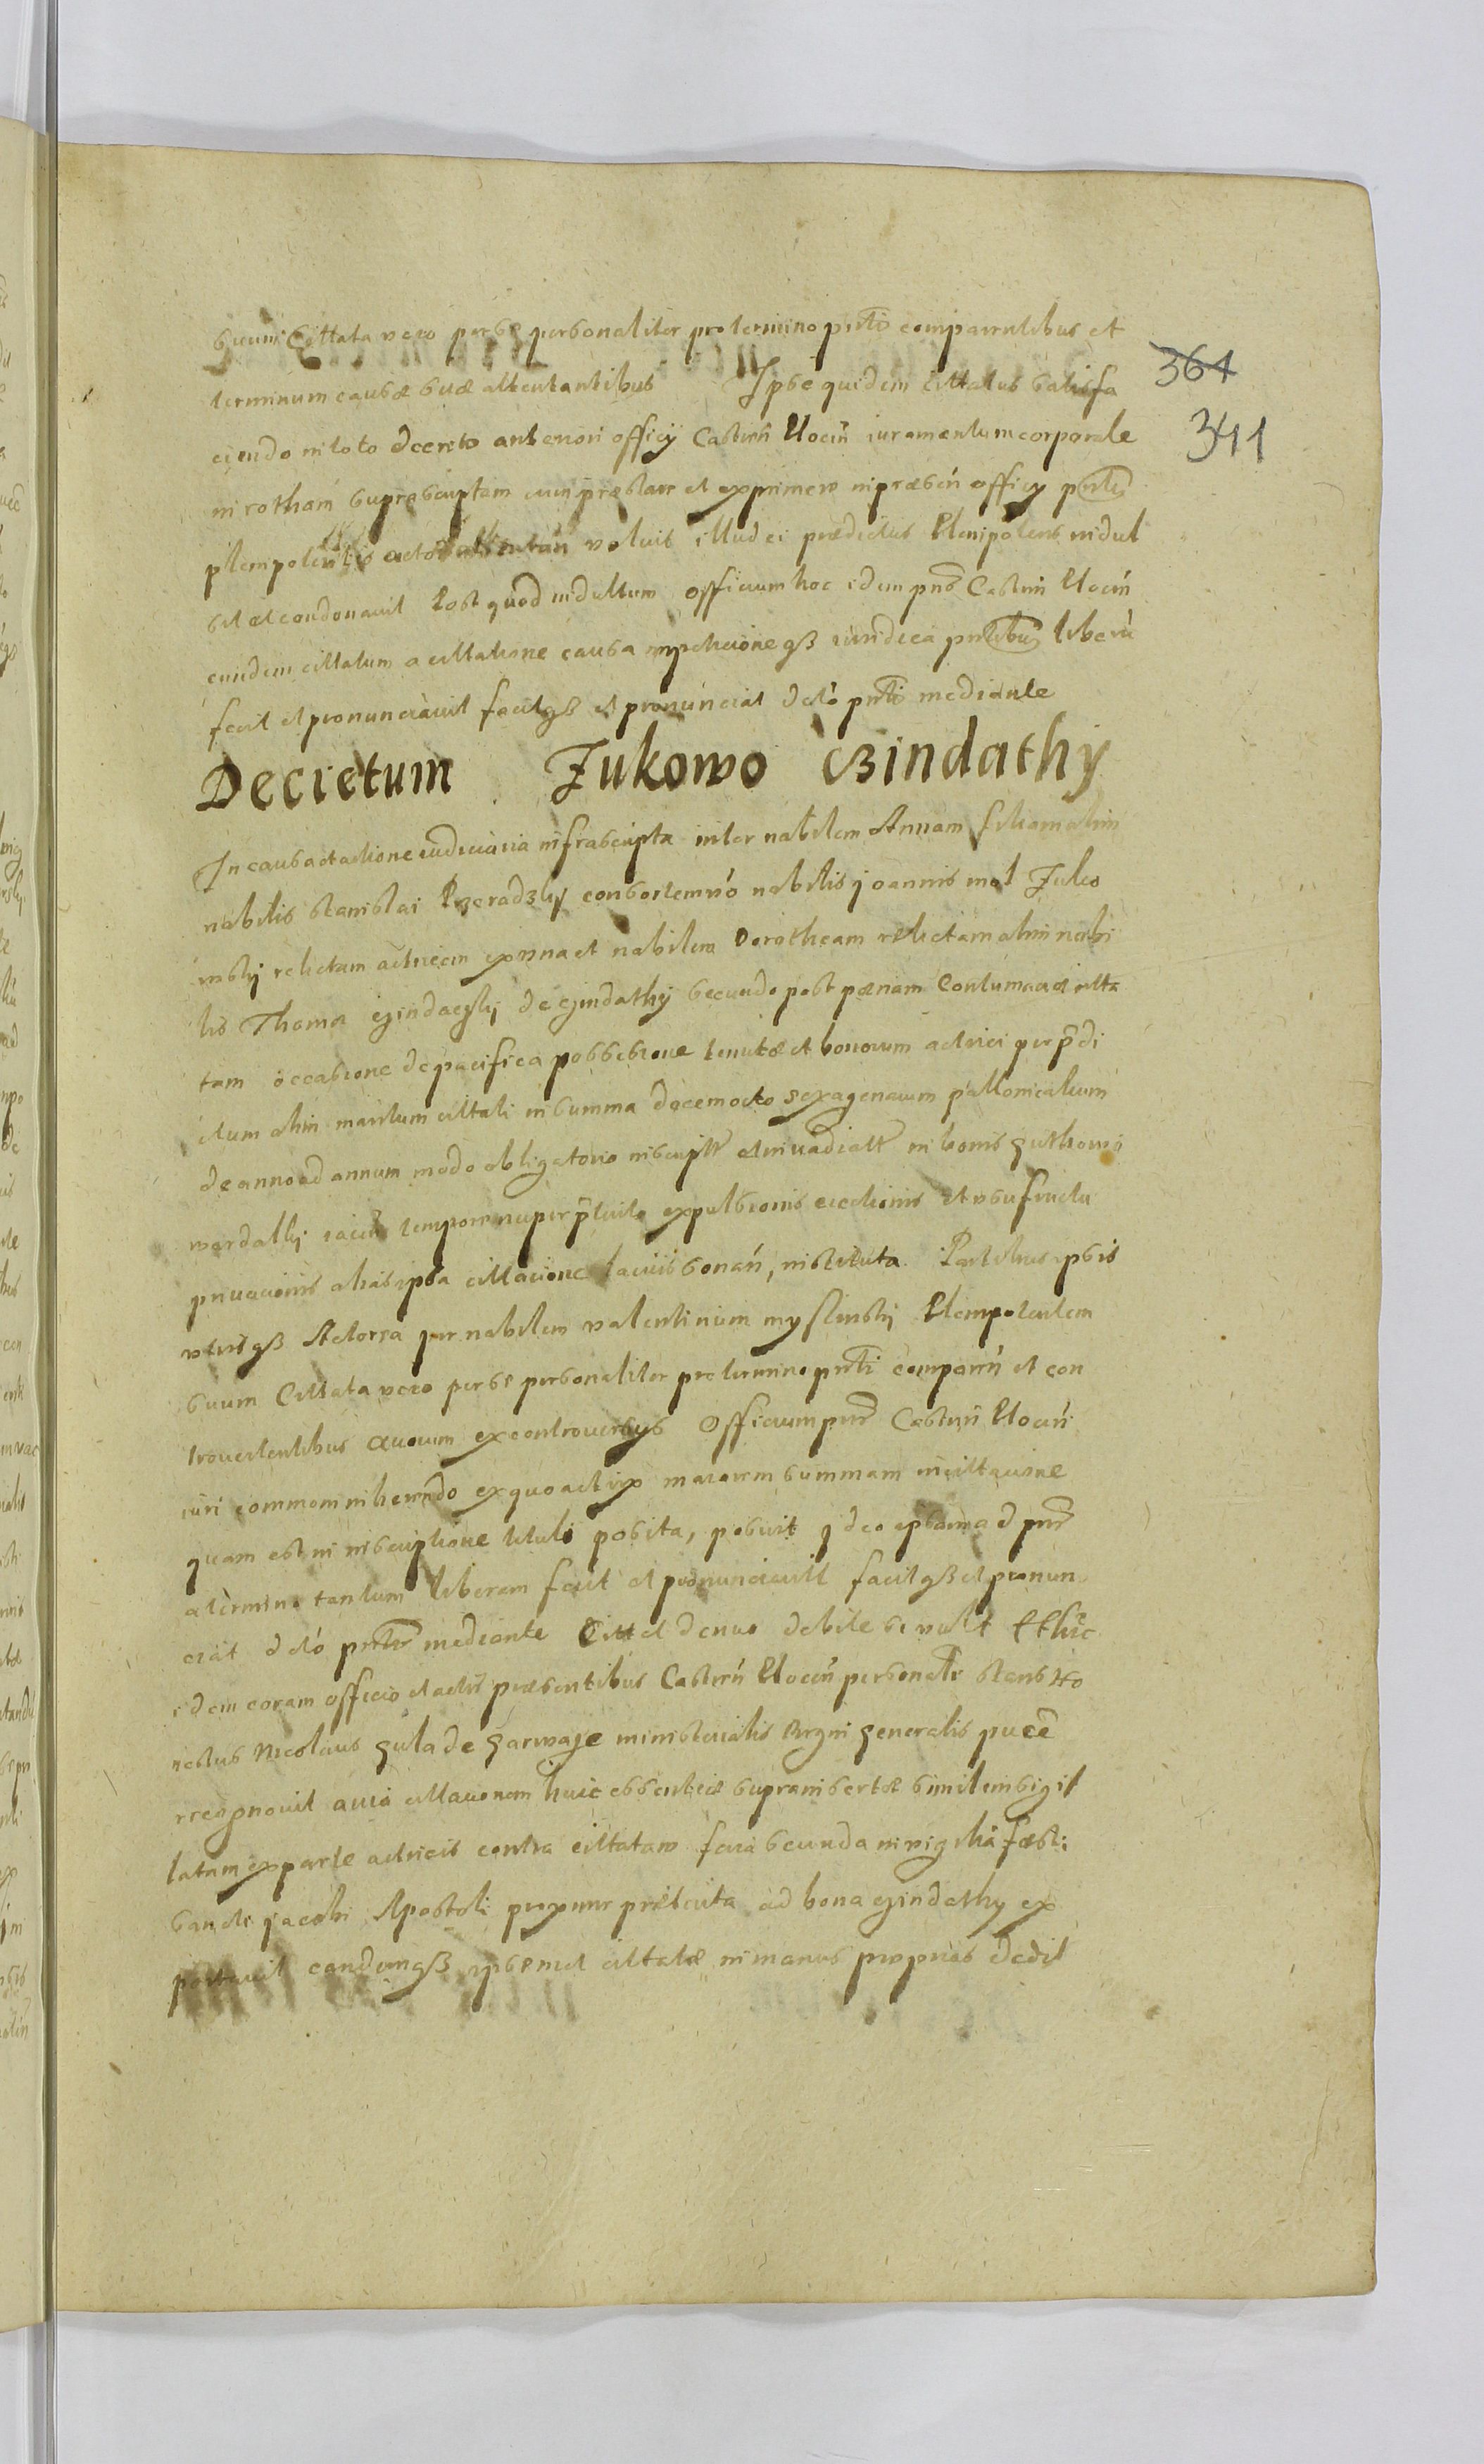 suum Cittata vero per se personaliter pro termino pnti comparentibus et
terminum causæ suæ attentantibus Ipse quidem cittatus satisfa
364
ciendo in toto decreto anteriori officij Castren Plocen iuramentum corporale
341
in rotham suprascriptam cum præstare et exprimere in præsen officij pntis
plenipotentis actor voluis illud ei prædictus Plenipotens indul
sit et condonavit Post quod indultum officium hoc idem pns Castren Plocen
eundem cittatum a cittatione causa impeticione qß iuridica pntibus liberu
fecit et pronunciavit facitqß et pronunciat dcto pnti mediante
Decretum Zukowo Czindathy
In causa et actione iudiciaria infrascripta inter nobilem Annam filiam olim
nobilis Stanislai Pzeradzky consortem vo nobilis Joannis mol Zuko
wsky relictam actricem ex vna et nobilem Dorotheam relictam olim nobi
lis Thomæ czindaczky de Czindathy secundo post pœnam Contumaciæ citta
tam occasione de pacifica possessione tenutæ et bonorum actrici per pdi
ctum olim maritum cittati in summa decem octo sexagenarum pollonicalium
de anno ad annum modo obligatorio inscriptt et invadiatt in bonis Suthowo
wardathy iacen tempore nuper pterito expulsionis eiectionis et vsufructu
privationis alias ipsa cittacione lacius sonan, instituta Partibus ipsis
vtrisqß Actorea per nobilem valentinum myslinsky Plenipotentem
suum Cittata vero per se personaliter pro termino pnti comparen et con
trovertentibus Quorum ex controversijs Officium pns Castren Plocen
iuri communi inherendo ex quo actrix maiorem summam in cittacione
quam est in inscriptione tituli posita, posuit ideo ipsam ad pns
a termino tantum liberam fecit et pronunciavit facitqß et pronun
ciat dcto pnti mediante Citt et denuo debite si vult Et hic
idem coram officio et actis præsentibus Castren Plocen personalr stans Ho
nestus Nicolaus Gula de Garwaje ministerialis Regni Generalis puce
rrecognovit quia cittacionem huic essentiæ supra insertæ similem sigil
latam ex parte actricis contra cittatam feria secunda in vigilia fæsti
Sancti Jacobi Apostoli proxime præterita ad bona czindathy ex
portavit eandemqß ipsemet cittatæ in manus proprias dedit